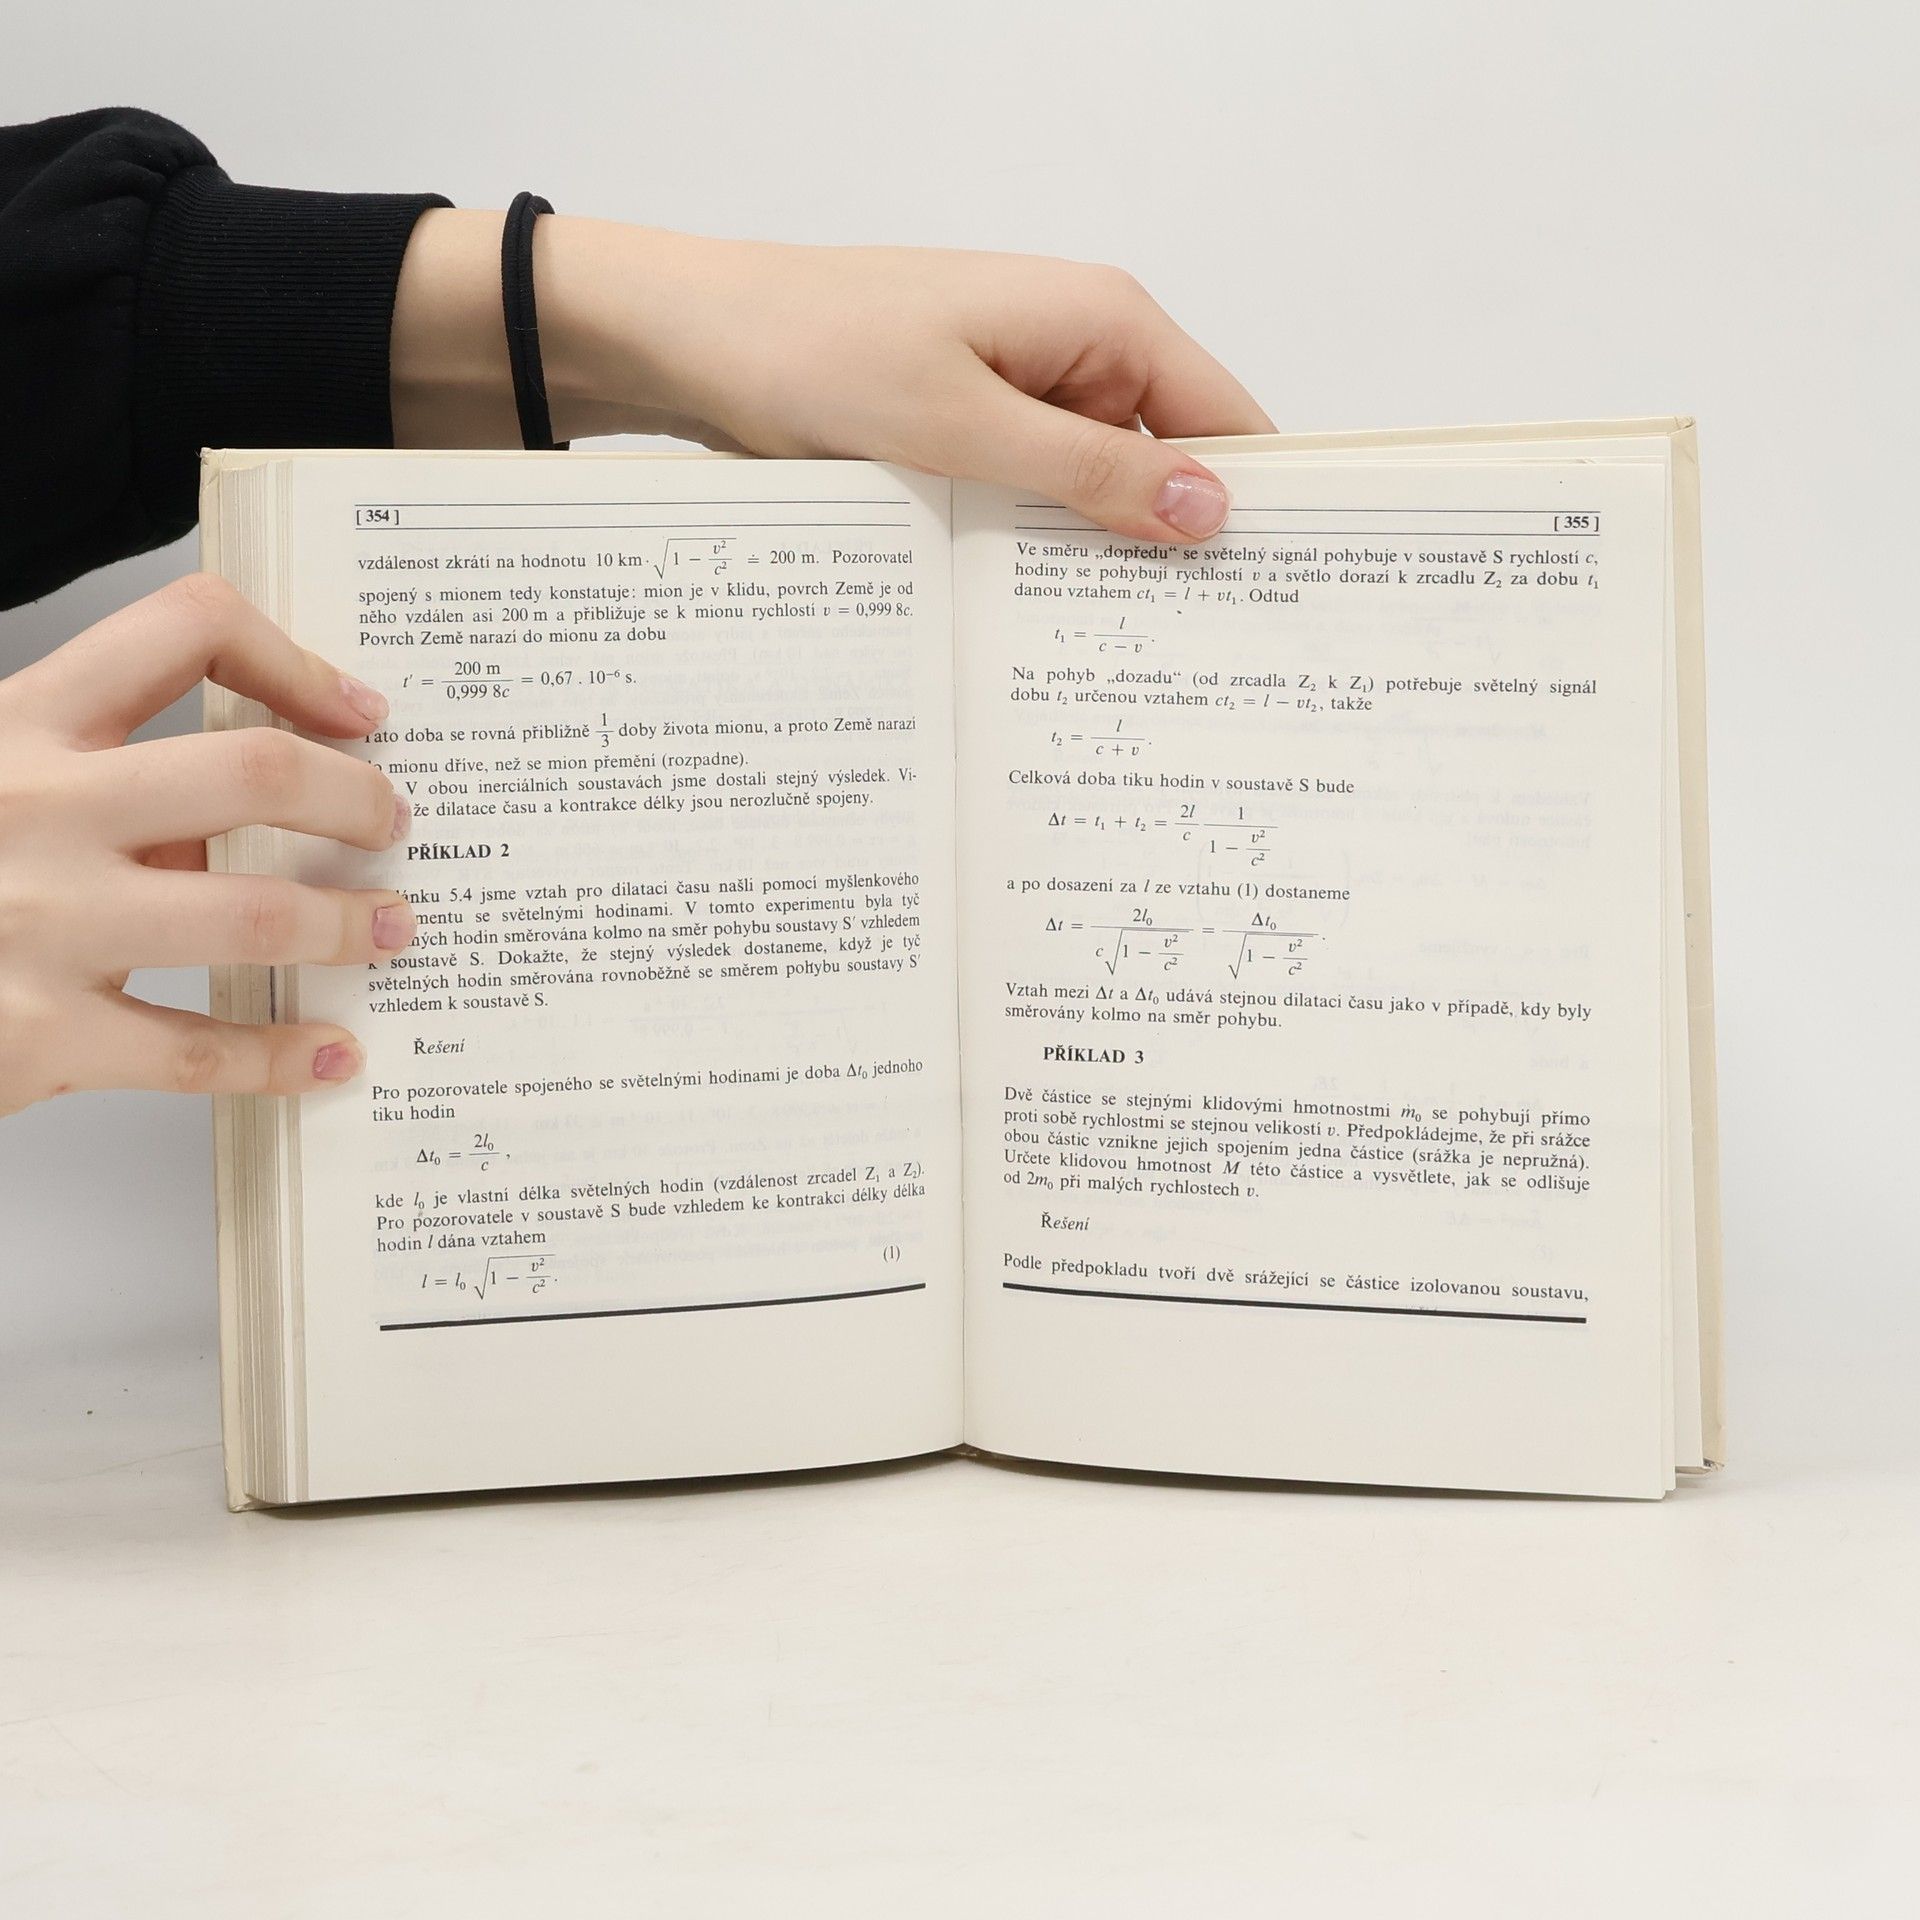 [ 354 ]
vzdálenost zkrátí na hodnotu 10 km · √(1 − v²/c²) ≐ 200 m. Pozorovatel
spojený s mionem tedy konstatuje: mion je v klidu, povrch Země je od
něho vzdálen asi 200 m a přibližuje se k mionu rychlostí v = 0,999 8c.
Povrch Země narazí do mionu za dobu
t′ = 200 m / 0,999 8c = 0,67 . 10⁻⁶ s.
Tato doba se rovná přibližně 1/3 doby života mionu, a proto Země narazí
mionu dříve, než se mion přemění (rozpadne).
V obou inerciálních soustavách jsme dostali stejný výsledek. Vi-
že dilatace času a kontrakce délky jsou nerozlučně spojeny.
PŘÍKLAD 2
5.4 jsme vztah pro dilataci času našli pomocí myšlenkového
se světelnými hodinami. V tomto experimentu byla tyč
hodin směrována kolmo na směr pohybu soustavy S′ vzhledem
k soustavě S. Dokažte, že stejný výsledek dostaneme, když je tyč
světelných hodin směrována rovnoběžně se směrem pohybu soustavy S′
vzhledem k soustavě S.
Řešení
Pro pozorovatele spojeného se světelnými hodinami je doba Δt₀ jednoho
tiku hodin
Δt₀ = 2l₀/c ,
kde l₀ je vlastní délka světelných hodin (vzdálenost zrcadel Z₁ a Z₂).
Pro pozorovatele v soustavě S bude vzhledem ke kontrakci délky délka
hodin l dána vztahem
l = l₀ √(1 − v²/c²). (1)
[ 355 ]
Ve směru „dopředu“ se světelný signál pohybuje v soustavě S rychlostí c,
hodiny se pohybují rychlostí v a světlo dorazí k zrcadlu Z₂ za dobu t₁
danou vztahem ct₁ = l + vt₁. Odtud
t₁ = l/(c − v).
Na pohyb „dozadu“ (od zrcadla Z₂ k Z₁) potřebuje světelný signál
dobu t₂ určenou vztahem ct₂ = l − vt₂, takže
t₂ = l/(c + v).
Celková doba tiku hodin v soustavě S bude
Δt = t₁ + t₂ = 2l/c 1/(1 − v²/c²)
a po dosazení za l ze vztahu (1) dostaneme
Δt = 2l₀/(c√(1 − v²/c²)) = Δt₀/√(1 − v²/c²).
Vztah mezi Δt a Δt₀ udává stejnou dilataci času jako v případě, kdy byly
směrovány kolmo na směr pohybu.
PŘÍKLAD 3
Dvě částice se stejnými klidovými hmotnostmi m₀ se pohybují přímo
proti sobě rychlostmi se stejnou velikostí v. Předpokládejme, že při srážce
obou částic vznikne jejich spojením jedna částice (srážka je nepružná).
Určete klidovou hmotnost M této částice a vysvětlete, jak se odlišuje
od 2m₀ při malých rychlostech v.
Řešení
Podle předpokladu tvoří dvě srážející se částice izolovanou soustavu,